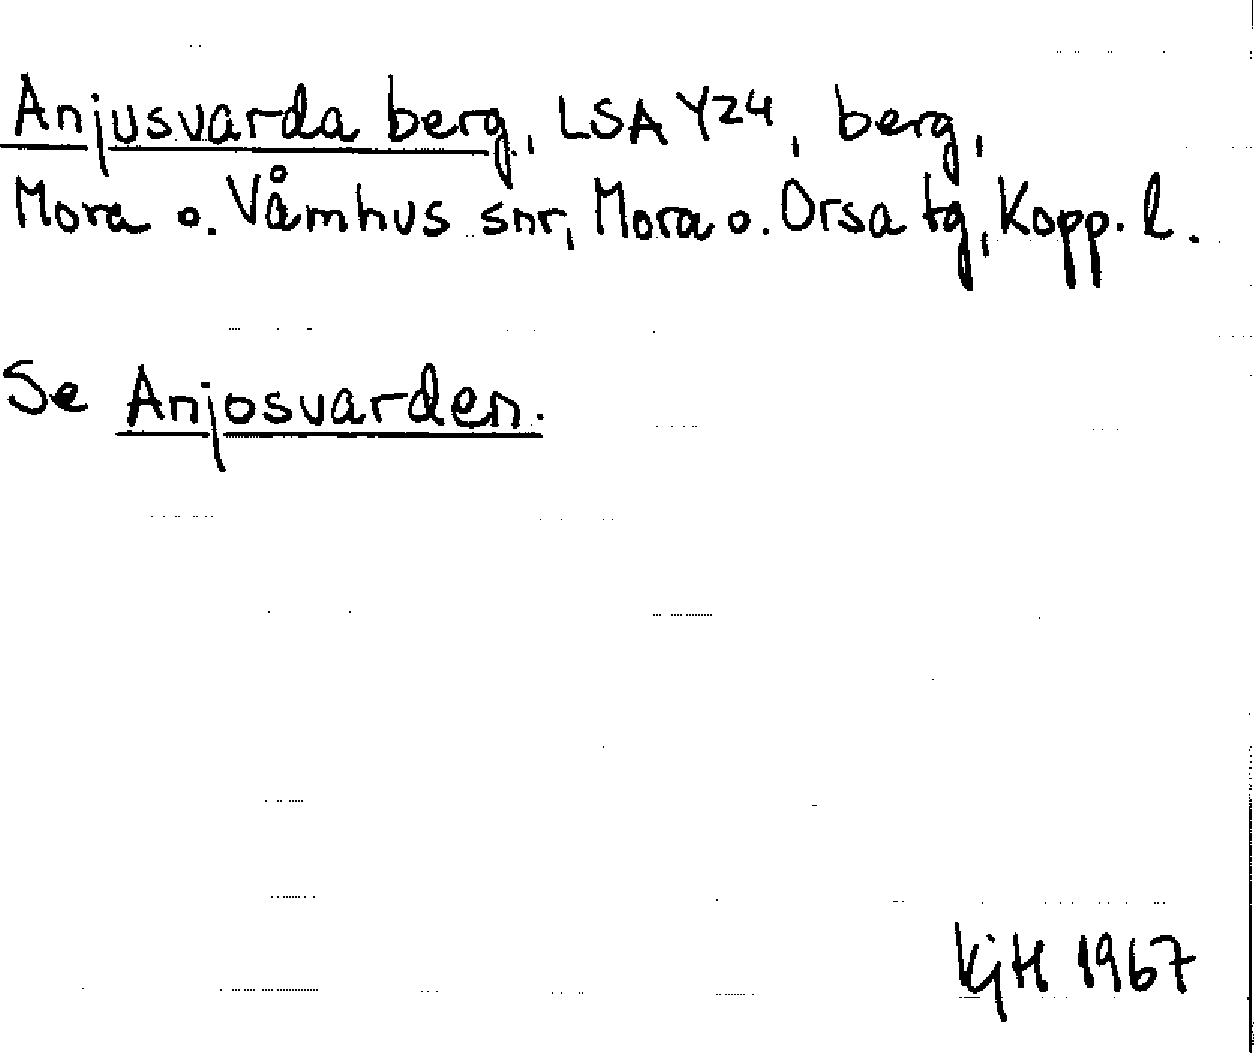 Anjusvarda berg, LSA Y24, berg,
Mora o. Våmhus snr, Mora o. Orsa tg, Kopp. l.
Se Anjosvarden.
KjH 1967